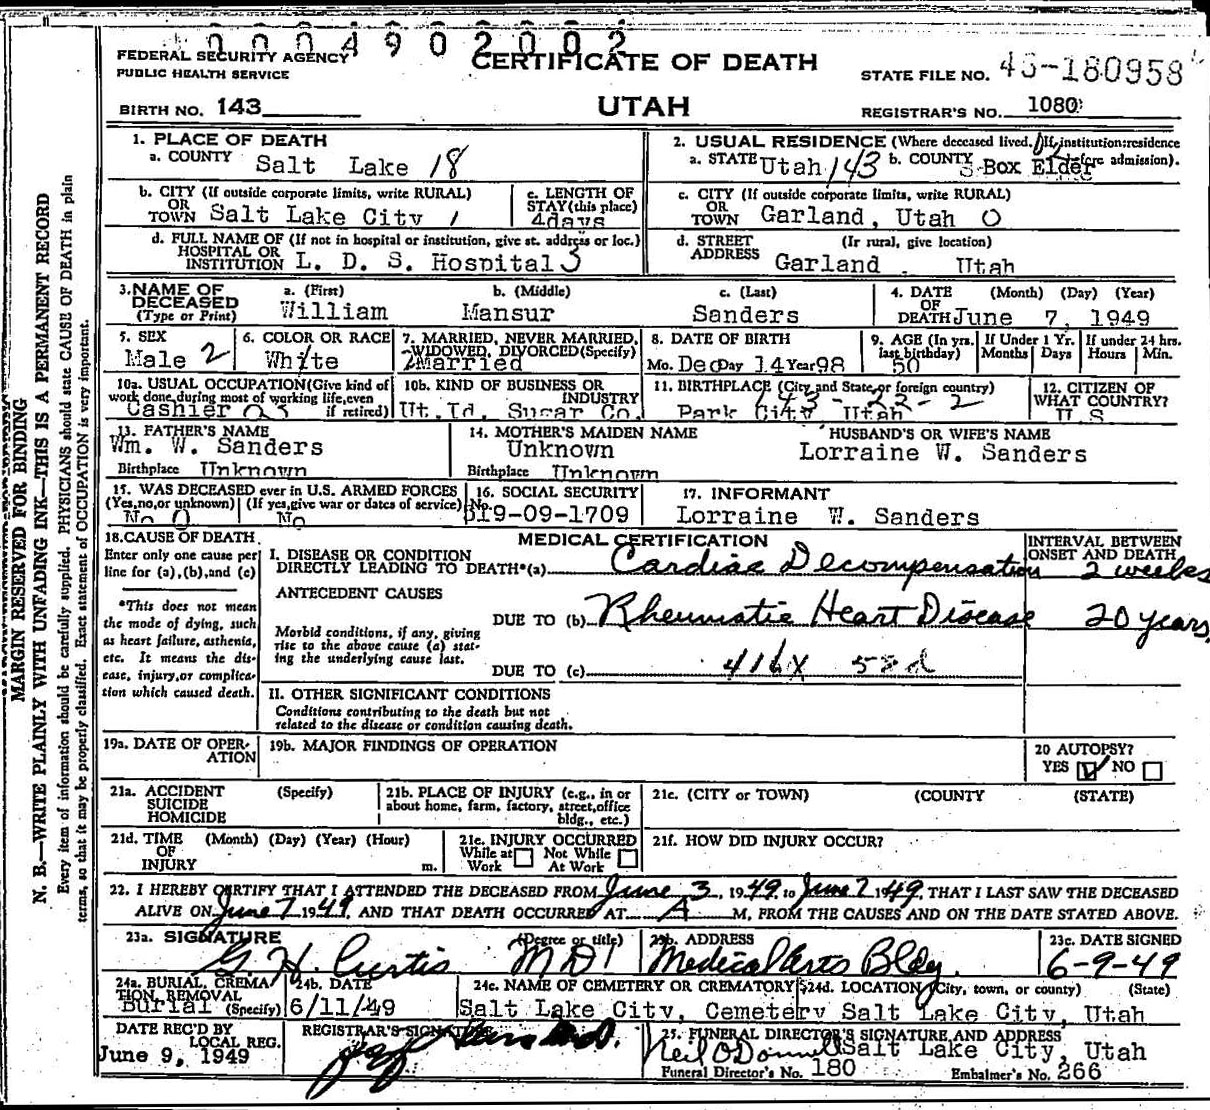 0 0 0 4 9 0 2 0 0 2
FEDERAL SECURITY AGENCY
PUBLIC HEALTH SERVICE
CERTIFICATE OF DEATH
STATE FILE NO. 180958
BIRTH NO. 143
UTAH
REGISTRAR'S NO. 1080
MARGIN RESERVED FOR BINDING
N. B.—WRITE PLAINLY WITH UNFADING INK—THIS IS A PERMANENT RECORD
Every item of information should be carefully supplied. PHYSICIANS should state CAUSE OF DEATH in plain
terms, so that it may be properly classified. Exact statement of OCCUPATION is very important.
1. PLACE OF DEATH
a. COUNTY Salt Lake 18
2. USUAL RESIDENCE (Where deceased lived. If institution: residence before admission).
a. STATE Utah 143 b. COUNTY Box Elder
b. CITY (If outside corporate limits, write RURAL)
OR TOWN Salt Lake City
c. LENGTH OF STAY (this place)
4days
c. CITY (If outside corporate limits, write RURAL)
OR TOWN Garland, Utah 0
d. FULL NAME OF (If not in hospital or institution, give st. address or loc.)
HOSPITAL OR INSTITUTION L. D. S. Hospital 3
d. STREET ADDRESS (If rural, give location)
Garland Utah
3. NAME OF DECEASED (Type or Print)
a. (First) William
b. (Middle) Mansur
c. (Last) Sanders
4. DATE OF DEATH (Month) (Day) (Year)
June 7, 1949
5. SEX
Male 2
6. COLOR OR RACE
White
7. MARRIED, NEVER MARRIED, WIDOWED, DIVORCED (Specify)
2 Married
8. DATE OF BIRTH
Mo. Dec Day 14 Year 98
9. AGE (In yrs. last birthday)
50
If Under 1 Yr. Months Days
If under 24 hrs. Hours Min.
10a. USUAL OCCUPATION (Give kind of work done during most of working life, even if retired)
Cashier
10b. KIND OF BUSINESS OR INDUSTRY
Ut. Id. Sugar Co.
11. BIRTHPLACE (City and State or foreign country)
Park City Utah
12. CITIZEN OF WHAT COUNTRY?
U S
13. FATHER'S NAME
Wm. W. Sanders
Birthplace Unknown
14. MOTHER'S MAIDEN NAME
Unknown
Birthplace Unknown
HUSBAND'S OR WIFE'S NAME
Lorraine W. Sanders
15. WAS DECEASED ever in U.S. ARMED FORCES
(Yes, no, or unknown) (If yes, give war or dates of service)
No 0 No
16. SOCIAL SECURITY No.
519-09-1709
17. INFORMANT
Lorraine W. Sanders
18. CAUSE OF DEATH
Enter only one cause per line for (a), (b), and (c)
*This does not mean the mode of dying, such as heart failure, asthenia, etc. It means the disease, injury, or complication which caused death.
MEDICAL CERTIFICATION
INTERVAL BETWEEN ONSET AND DEATH
I. DISEASE OR CONDITION DIRECTLY LEADING TO DEATH*(a) Cardiac Decompensation 2 weeks
ANTECEDENT CAUSES
DUE TO (b) Rheumatic Heart Disease 20 years
Morbid conditions, if any, giving rise to the above cause (a) stating the underlying cause last.
DUE TO (c) 416X
II. OTHER SIGNIFICANT CONDITIONS
Conditions contributing to the death but not related to the disease or condition causing death.
19a. DATE OF OPERATION
19b. MAJOR FINDINGS OF OPERATION
20 AUTOPSY?
YES NO
21a. ACCIDENT SUICIDE HOMICIDE (Specify)
21b. PLACE OF INJURY (e.g., in or about home, farm, factory, street, office bldg., etc.)
21c. (CITY or TOWN) (COUNTY) (STATE)
21d. TIME OF INJURY (Month) (Day) (Year) (Hour) m.
21e. INJURY OCCURRED
While at Work Not While At Work
21f. HOW DID INJURY OCCUR?
22. I HEREBY CERTIFY THAT I ATTENDED THE DECEASED FROM June 3, 1949, to June 7 1949, THAT I LAST SAW THE DECEASED
ALIVE ON June 7 1949, AND THAT DEATH OCCURRED AT A M., FROM THE CAUSES AND ON THE DATE STATED ABOVE.
23a. SIGNATURE (Degree or title)
G. H. Curtis MD
23b. ADDRESS
Medical Arts Bldg.
23c. DATE SIGNED
6-9-49
24a. BURIAL, CREMATION, REMOVAL (Specify)
Burial
24b. DATE
6/11/49
24c. NAME OF CEMETERY OR CREMATORY
Salt Lake City, Cemetery
24d. LOCATION (City, town, or county) (State)
Salt Lake City, Utah
DATE REC'D BY LOCAL REG.
June 9, 1949
REGISTRAR'S SIGNATURE
25. FUNERAL DIRECTOR'S SIGNATURE AND ADDRESS
Neil O'Donnell Salt Lake City, Utah
Funeral Director's No. 180 Embalmer's No. 266